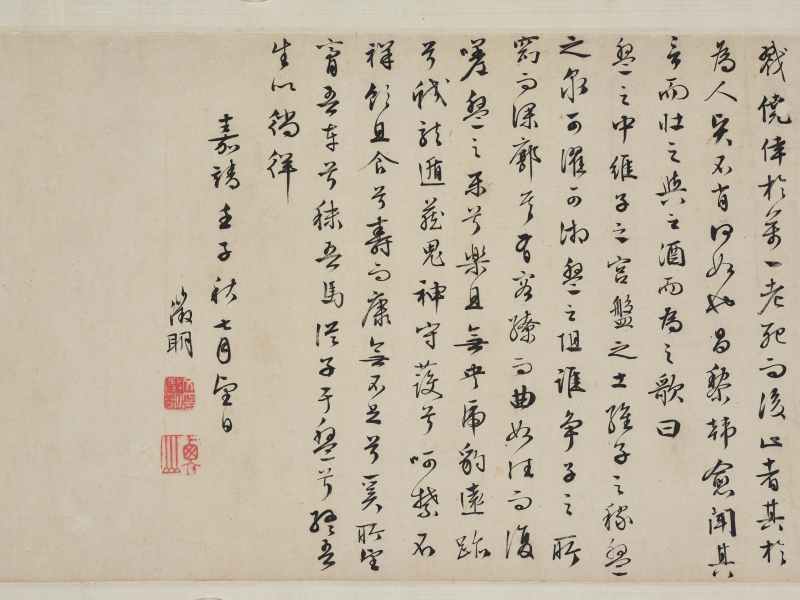 戮僥倖於萬一老死而後止者其於
為人賢不肖何如也昌黎韓愈聞其
言而壯之與之酒而為之歌曰
盤之中維子之宮盤之土維子之稼盤
之泉可濯可湘盤之阻誰爭子之所
窈而深廓其有容繚而曲如往而復
嗟盤之樂兮樂且無央虎豹遠跡
兮蛟龍遁藏鬼神守護兮呵禁不
祥飲且食兮壽而康無不足兮奚所望
膏吾車兮秣吾馬從子于盤兮終吾
生以徜徉
嘉靖壬子秋七月望日
徵明
衡山